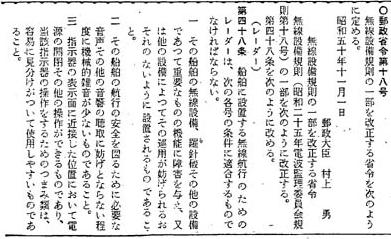 〇郵政省令第十八号
無線設備規則の一部を改正する省令を次のよう
に定める。
昭和五十年十一月一日
郵政大臣 村上 勇
無線設備規則の一部を改正する省令
無線設備規則(昭和二十五年電波監理委員会規
則第十八号)の一部を次のように改正する。
第四十八条を次のように改める。
(レーダー)
第四十八条 船舶に設置する無線航行のための
レーダーは、次の各号の条件に適合するもので
なければならない。
一 その船舶の無線設備、羅針儀その他の設備
であつて重要なものの機能に障害を与え、又
は他の設備によつてその運用が妨げられるお
それのないように設置されるものであるこ
と。
二 その船舶の航行の安全を図るために必要な
音声その他の音響の聴取に妨げとならない程
度に機械的雑音が少ないものであること。
三 指示器の表示面に近接した位置において電
源の開閉その他の操作ができるものであり、
当該指示器の操作をするためのつまみ類は、
容易に見分けがついて使用しやすいものであ
ること。